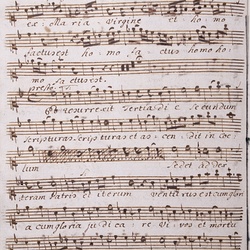 ex Maria Virgine et ho mo
factus est ho mo factus homo ho
mo factus est.
presto
Et resurrexit Tertia di e secundum
scripturas scripturas et as cen dit in coe
lum sedet ad Dex
teram Patris et iterum venturus est cum glori
a cum gloria ju di ca re vi vos et mortu